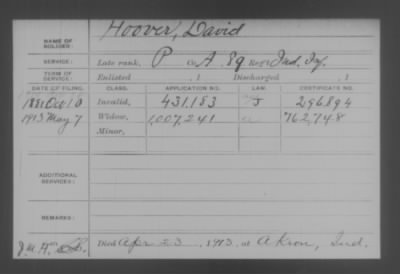 NAME OF SOLDIER: Hoover, David
SERVICE: Late rank, P Co. A, 89 Reg't Ind. Inf.
TERM OF SERVICE: Enlisted , 1 Discharged , 1
DATE OF FILING. CLASS. APPLICATION NO. LAW. CERTIFICATE NO.
1881 Oct 10 Invalid, 431,183 296894
1913 May 7 Widow, 1,007,241 762,748
Minor,
ADDITIONAL SERVICES:
REMARKS:
Died Apr 23, 1913, at Akron, Ind.